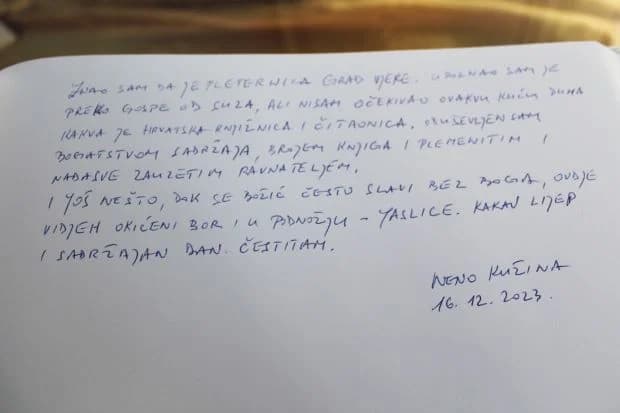 ZNAO SAM DA JE PLETERNICA GRAD VJERE. UPOZNAO SAM JE
PREKO GOSPE OD SUZA, ALI NISAM OČEKIVAO OVAKVU KUĆU DUHA
KAKVA JE HRVATSKA KNJIŽNICA I ČITAONICA. ODUŠEVLJEN SAM
BOGATSTVOM SADRŽAJA, BROJEM KNJIGA I PLEMENITIM I
NADASVE ZAUZETIM RAVNATELJEM.
I JOŠ NEŠTO, DOK SE BOŽIĆ ČESTO SLAVI BEZ BOGA, OVDJE
VIDJEH OKIĆENI BOR I U PODNOŽJU - JASLICE. KAKAV LIJEP
I SADRŽAJAN DAN. ČESTITAM.
NENO KUŽINA
16.12.2023.